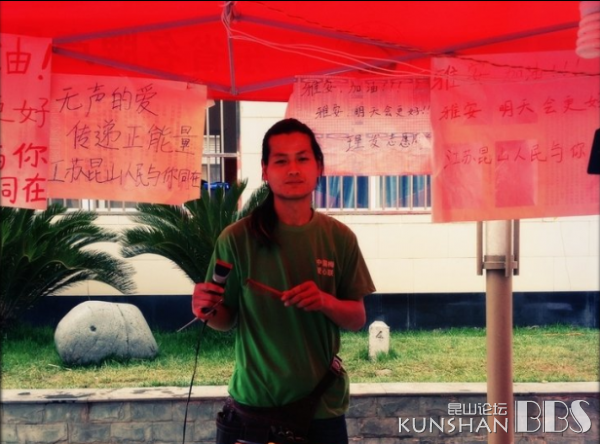 油！
更好
与你
同在
无声的爱
传递正能量
江苏昆山人民与你同在
雅安，加油！！
雅安 明天会更好！！
雅安
雅安 明天会更好
江苏昆山人民与你
中国
4
昆山论坛
KUNSHAN BBS